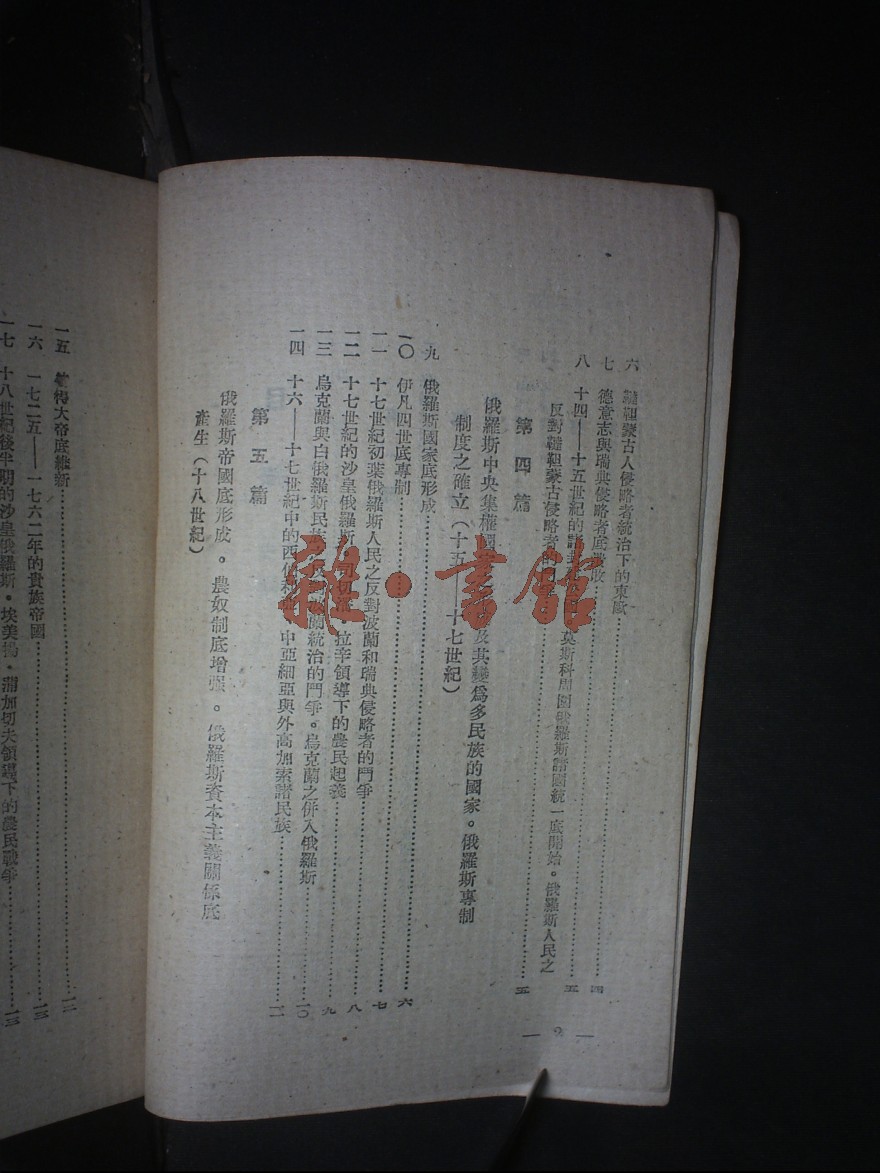 六 韃靼蒙古人侵略者統治下的東歐
七 德意志與瑞典侵略者底
四
八 十四——十五世紀的諸 莫斯科周圍俄羅斯諸國統一底開始。俄羅斯人民之
五
反對韃靼蒙古侵略者的
五
第四篇
俄羅斯中央集權 及其變爲多民族的國家。俄羅斯專制
制度之確立(十五——十七世紀)
九 俄羅斯國家底形成
六
一〇 伊凡四世底專制
七
一一 十七世紀初葉俄羅斯人民之反對波蘭和瑞典侵略者的鬥爭
八
一二 十七世紀的沙皇俄羅斯 拉辛領導下的農民起義
九
一三 烏克蘭與白俄羅斯民族 波蘭統治的鬥爭。烏克蘭之併入俄羅斯
一〇
一四 十六——十七世紀中的西伯利亞、中亞細亞與外高加索諸民族
第五篇
俄羅斯帝國底形成。農奴制底增强。俄羅斯資本主義關係底
產生(十八世紀)
— 2 —
一五 彼得大帝底維新
一二
一六 一七二五——一七六二年的貴族帝國
一三
一七 十八世紀後半期的沙皇俄羅斯。埃美揚·蒲加切夫領導下的農民戰爭
一三
雜·書館